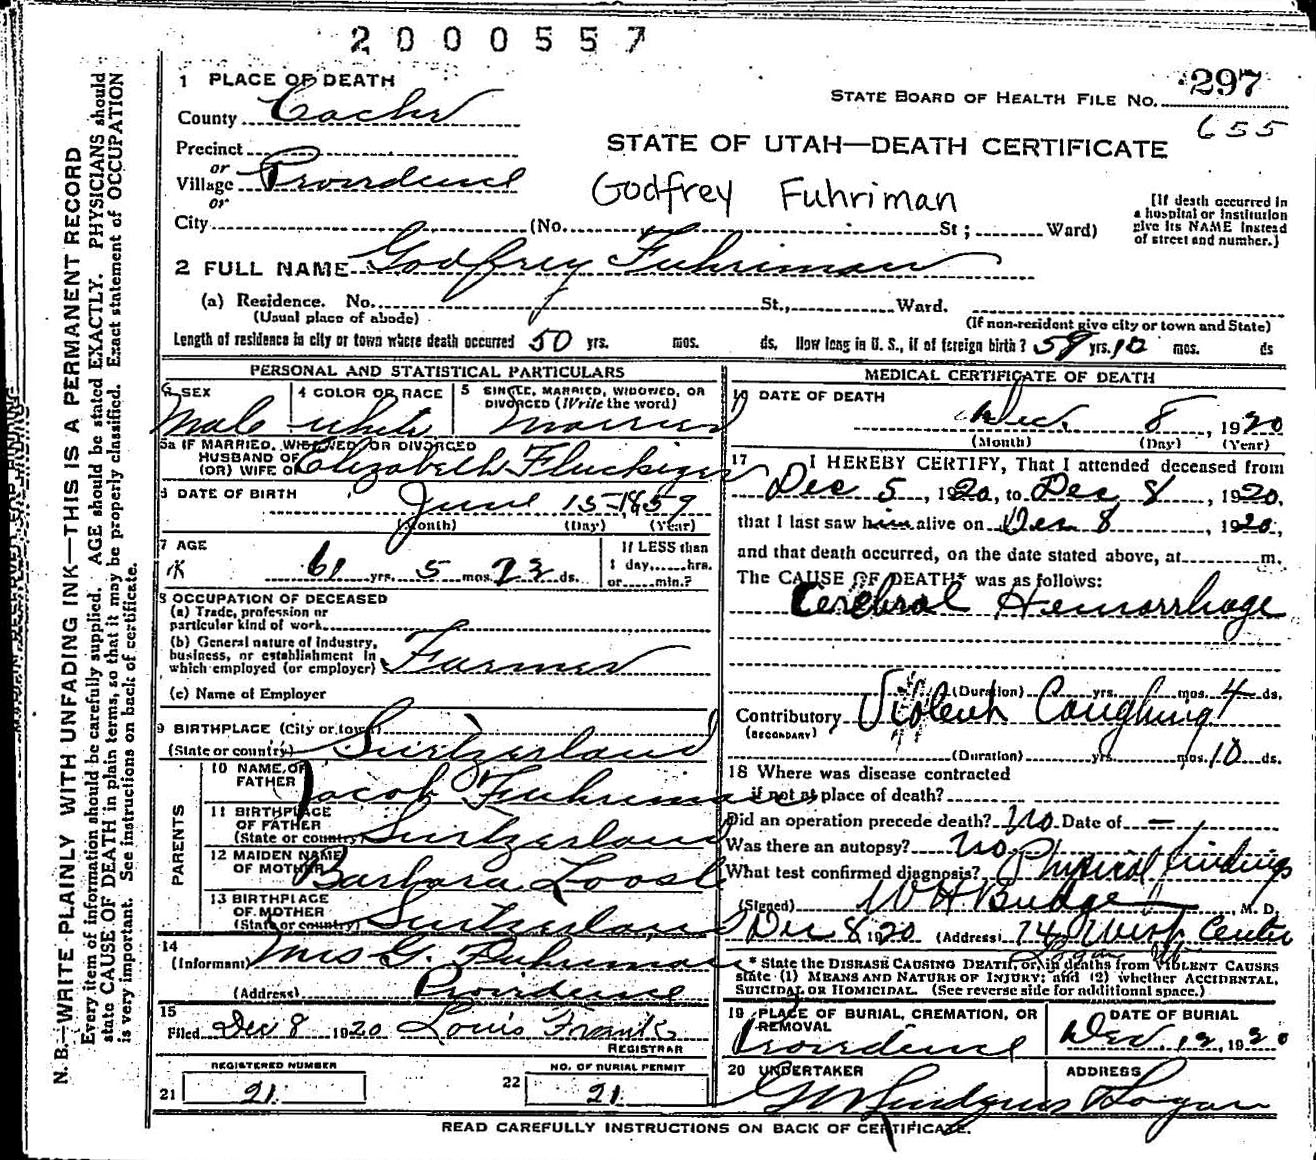 2000557
1 PLACE OF DEATH
297
STATE BOARD OF HEALTH FILE NO.
655
County Cache
STATE OF UTAH—DEATH CERTIFICATE
Precinct
or
Village Providence
or
Godfrey Fuhriman
[If death occurred in
a hospital or institution
give its NAME instead
of street and number.]
City (No. St ; Ward)
2 FULL NAME Godfrey Fuhriman
(a) Residence. No. St., Ward.
(Usual place of abode)
(If non-resident give city or town and State)
Length of residence in city or town where death occurred 50 yrs. mos. ds. How long in U. S., if of foreign birth? 59 yrs. 10 mos. ds
PERSONAL AND STATISTICAL PARTICULARS
3 SEX
Male
4 COLOR OR RACE
white
5 SINGLE, MARRIED, WIDOWED, OR
DIVORCED (Write the word)
Married
5a IF MARRIED, WIDOWED, OR DIVORCED
HUSBAND OF
(OR) WIFE OF Elizabeth Fluckiger
6 DATE OF BIRTH
June 15-1859
(Month) (Day) (Year)
7 AGE
61 yrs. 5 mos. 23 ds.
If LESS than
1 day, hrs.
or min.?
8 OCCUPATION OF DECEASED
(a) Trade, profession or
particular kind of work
(b) General nature of industry,
business, or establishment in
which employed (or employer) Farmer
(c) Name of Employer
9 BIRTHPLACE (City or town)
(State or country) Switzerland
PARENTS
10 NAME OF
FATHER Jacob Fuhriman
11 BIRTHPLACE
OF FATHER
(State or country) Switzerland
12 MAIDEN NAME
OF MOTHER Barbara Loosli
13 BIRTHPLACE
OF MOTHER
(State or country) Switzerland
14
(Informant) Mrs G. Fuhriman
(Address) Providence
15
Filed Dec 8 1920 Louis Frank
REGISTRAR
REGISTERED NUMBER
21 21
NO. OF BURIAL PERMIT
22 21
MEDICAL CERTIFICATE OF DEATH
16 DATE OF DEATH
Dec. 8, 1920
(Month) (Day) (Year)
17 I HEREBY CERTIFY, That I attended deceased from
Dec 5, 1920, to Dec 8, 1920,
that I last saw him alive on Dec 8, 1920,
and that death occurred, on the date stated above, at m.
The CAUSE OF DEATH* was as follows:
Cerebral Hemorrhage
(Duration) yrs. mos. 4 ds.
Contributory Violent Coughing
(SECONDARY)
(Duration) yrs. mos. 10 ds.
18 Where was disease contracted
if not at place of death?
Did an operation precede death? No Date of —
Was there an autopsy? No
What test confirmed diagnosis? Physical findings
(Signed) W H Budge M. D.
Dec 8 1920 (Address) 74 West Center
Logan
* State the DISEASE CAUSING DEATH, or, in deaths from VIOLENT CAUSES
state (1) MEANS AND NATURE OF INJURY; and (2) whether ACCIDENTAL,
SUICIDAL OR HOMICIDAL. (See reverse side for additional space.)
19 PLACE OF BURIAL, CREMATION, OR
REMOVAL
Providence
DATE OF BURIAL
Dec. 12, 1920
20 UNDERTAKER
ADDRESS
Logan
READ CAREFULLY INSTRUCTIONS ON BACK OF CERTIFICATE.
N. B.—WRITE PLAINLY WITH UNFADING INK—THIS IS A PERMANENT RECORD
Every item of information should be carefully supplied. AGE should be stated EXACTLY. PHYSICIANS should
state CAUSE OF DEATH in plain terms, so that it may be properly classified. Exact statement of OCCUPATION
is very important. See instructions on back of certificate.